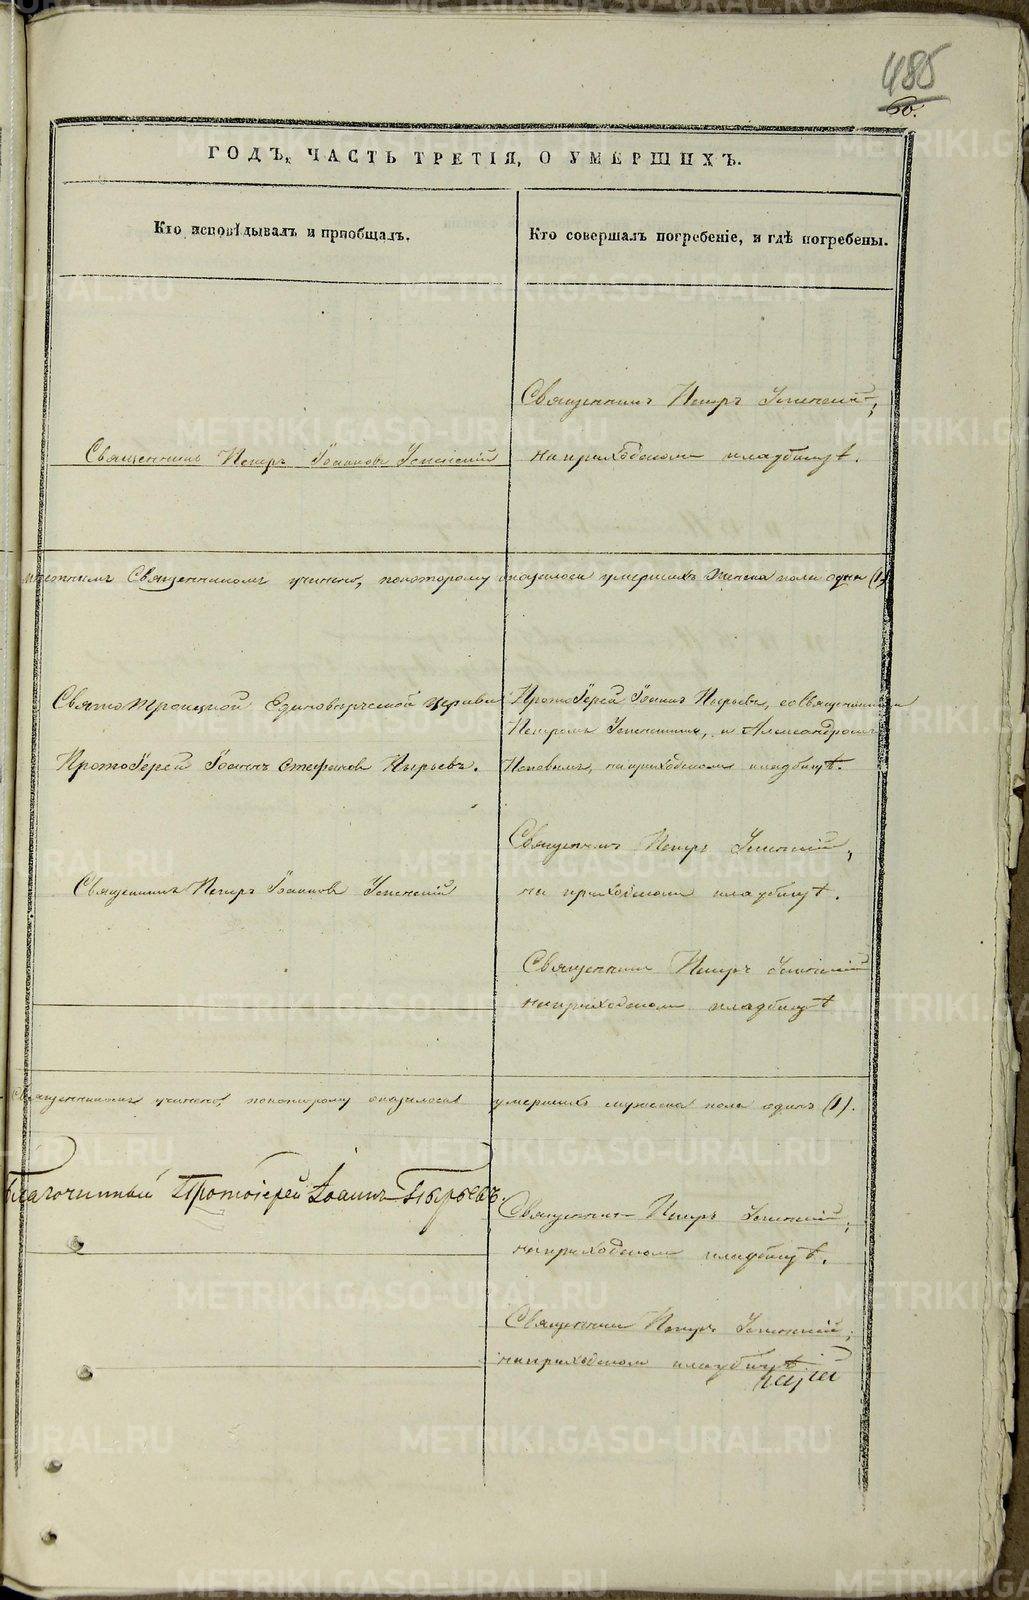 485
ГОДЪ, ЧАСТЬ ТРЕТІЯ, О УМЕРШИХЪ.
Кто исповѣдывалъ и пріобщалъ.
Кто совершалъ погребеніе, и гдѣ погребены.
Священникъ Петръ Успенскій,
Священникъ Петръ Іоанновъ Успенскій
на приходскомъ кладбищѣ.
Священникомъ учинено, по которому оказалось умершихъ женска пола одна (1)
Свято Троицкой Единовѣрческой церкви
Протоіерей Іоаннъ Стефановъ Пырьевъ.
Протоіерей Іоаннъ Пырьевъ, со Священниками
Петромъ Успенскимъ, и Александромъ
Поповымъ, на приходскомъ кладбищѣ.
Священникъ Петръ Успенскій,
Священникъ Петръ Іоанновъ Успенскій
на приходскомъ кладбищѣ.
Священникъ Петръ Успенскій
на приходскомъ кладбищѣ
Священникомъ учинено, по которому оказалось умершихъ мужеска пола одинъ (1).
Благочинный Протоіерей Іоаннъ Пырьевъ.
Священникъ Петръ Успенскій,
на приходскомъ кладбищѣ.
Священникъ Петръ Успенскій,
на приходскомъ кладбищѣ.
METRIKI.GASO-URAL.RU